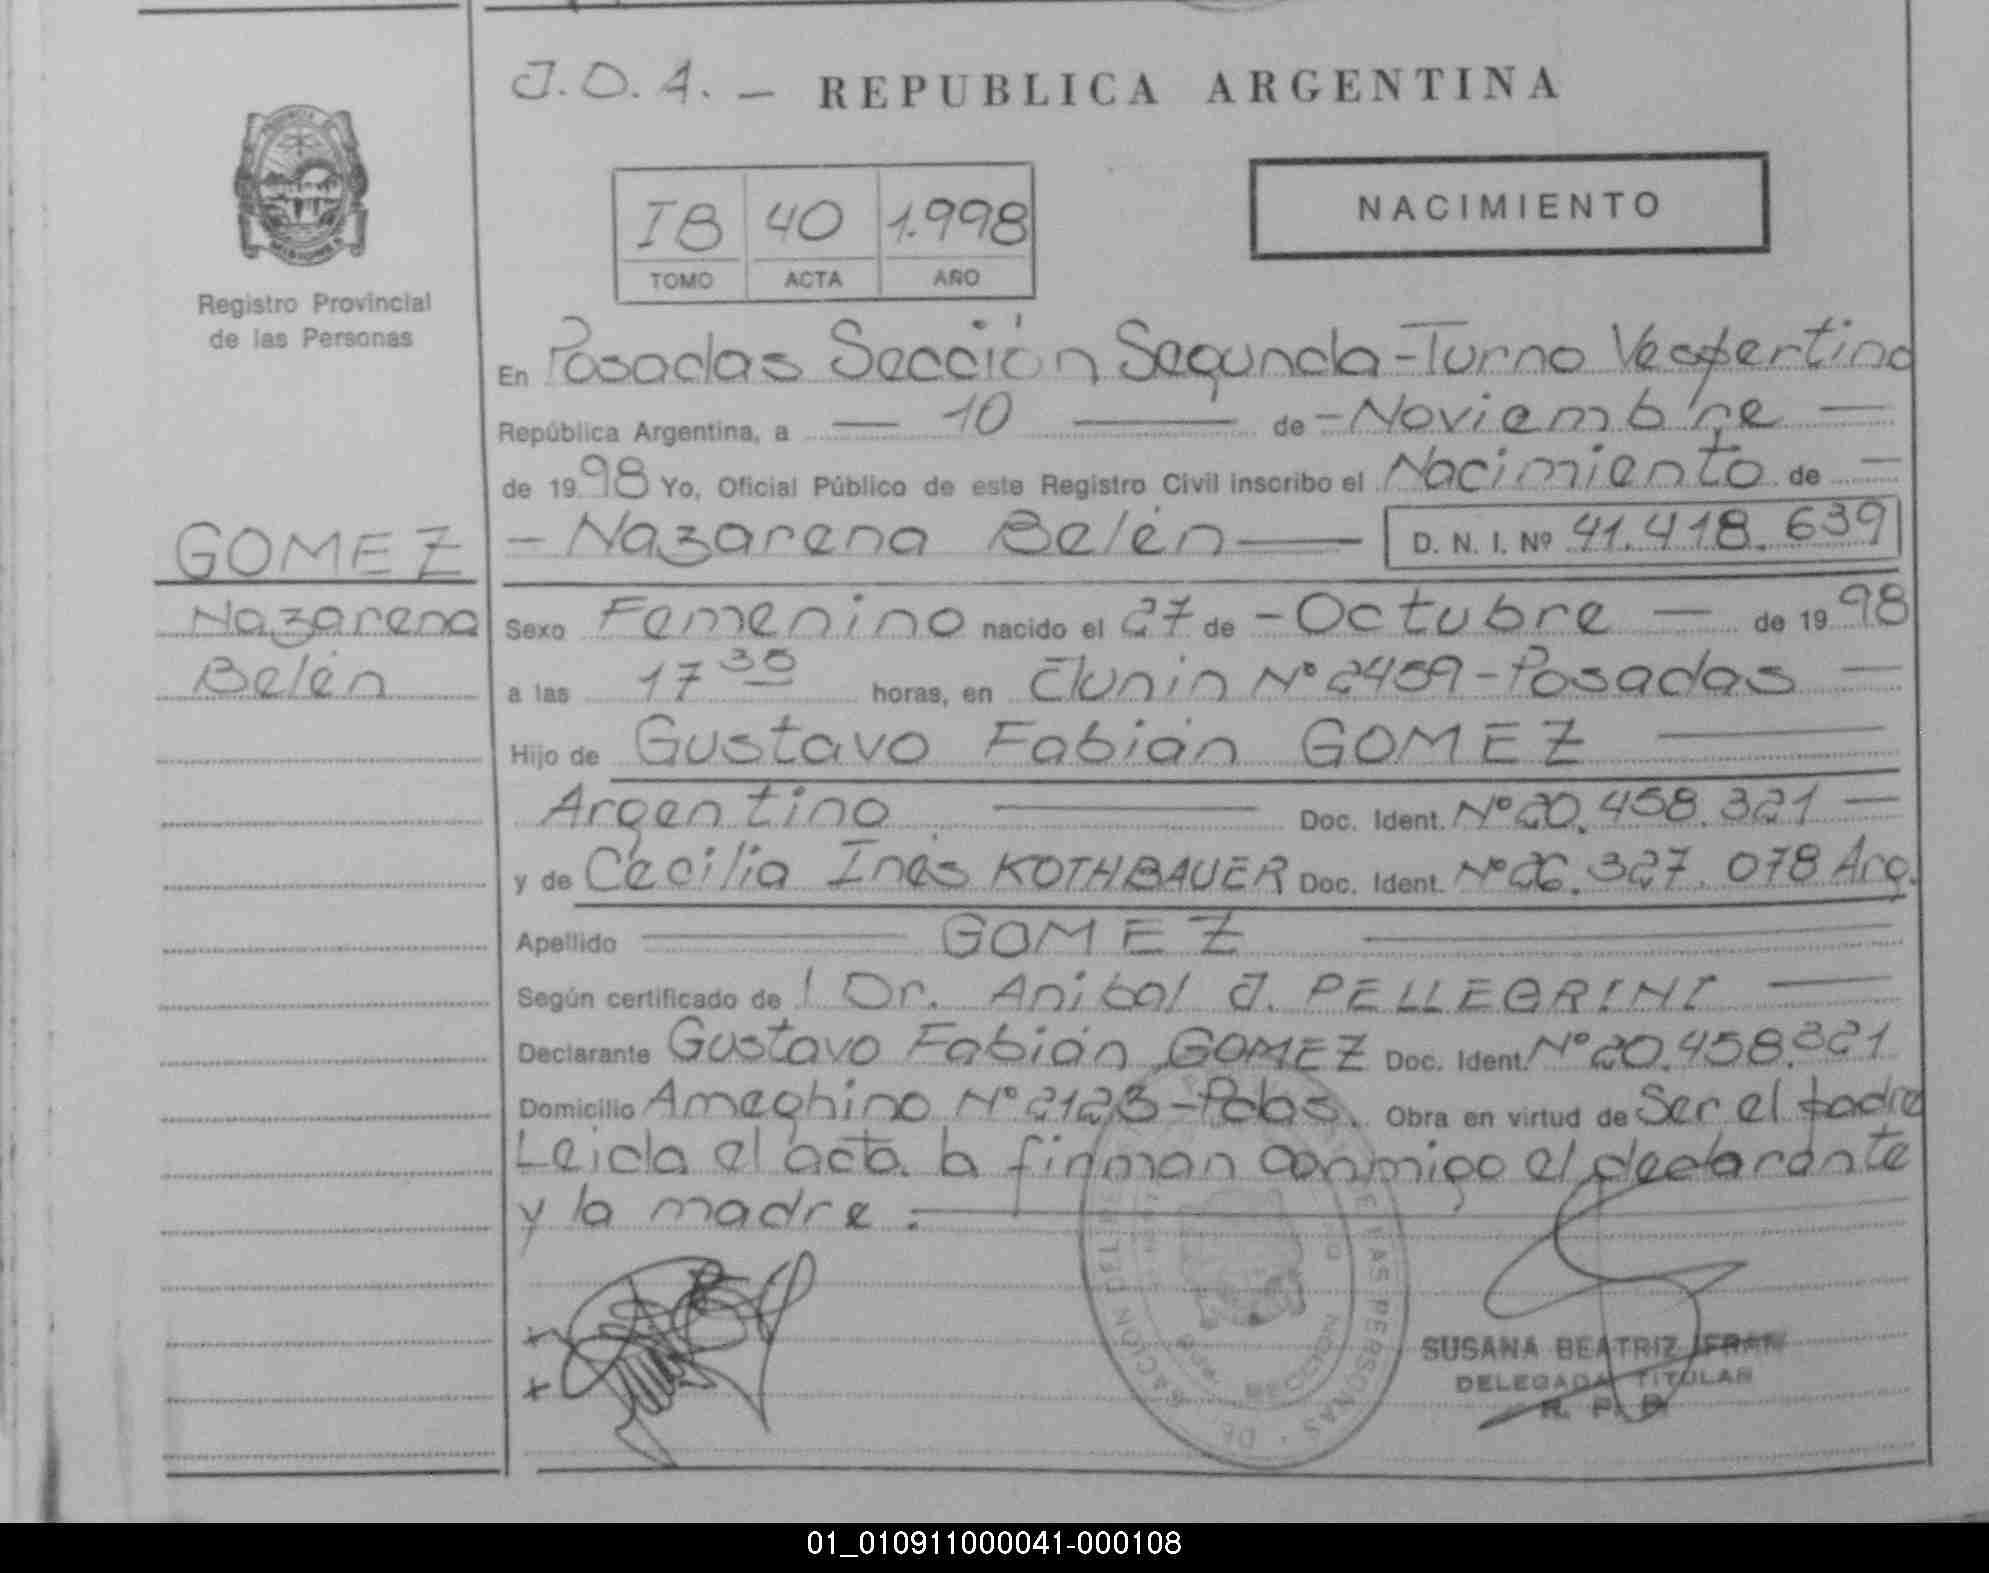 J.O.A. — REPUBLICA ARGENTINA
IB 40 1.998
TOMO ACTA AÑO
NACIMIENTO
Registro Provincial
de las Personas
En Posadas Sección Segunda - Turno Vespertino
República Argentina, a — 10 — de - Noviembre —
de 1998 Yo, Oficial Público de este Registro Civil inscribo el Nacimiento de —
GOMEZ
Nazarena
Belén
- Nazarena Belén — D. N. I. Nº 41.418.639
Sexo Femenino nacido el 27 de - Octubre — de 1998
a las 17 35 horas, en Junin Nº 2459 - Posadas —
Hijo de Gustavo Fabián GOMEZ —
Argentino — Doc. Ident. Nº 20.458.321 —
y de Cecilia Inés KOTHBAUER Doc. Ident. Nº 26.327.078 Arg.
Apellido — GOMEZ —
Según certificado de l Dr. Anibal J. PELLEGRINI —
Declarante Gustavo Fabián GOMEZ Doc. Ident. Nº 20.458.321
Domicilio Ameghino Nº 2123 - Pdas. Obra en virtud de Ser el padre
Leida el acta la firman conmigo el declarante
y la madre. —
DE LAS PERSONAS
SECCION
SUSANA BEATRIZ IFRAN
DELEGADA TITULAR
R. P. P.
01_010911000041-000108